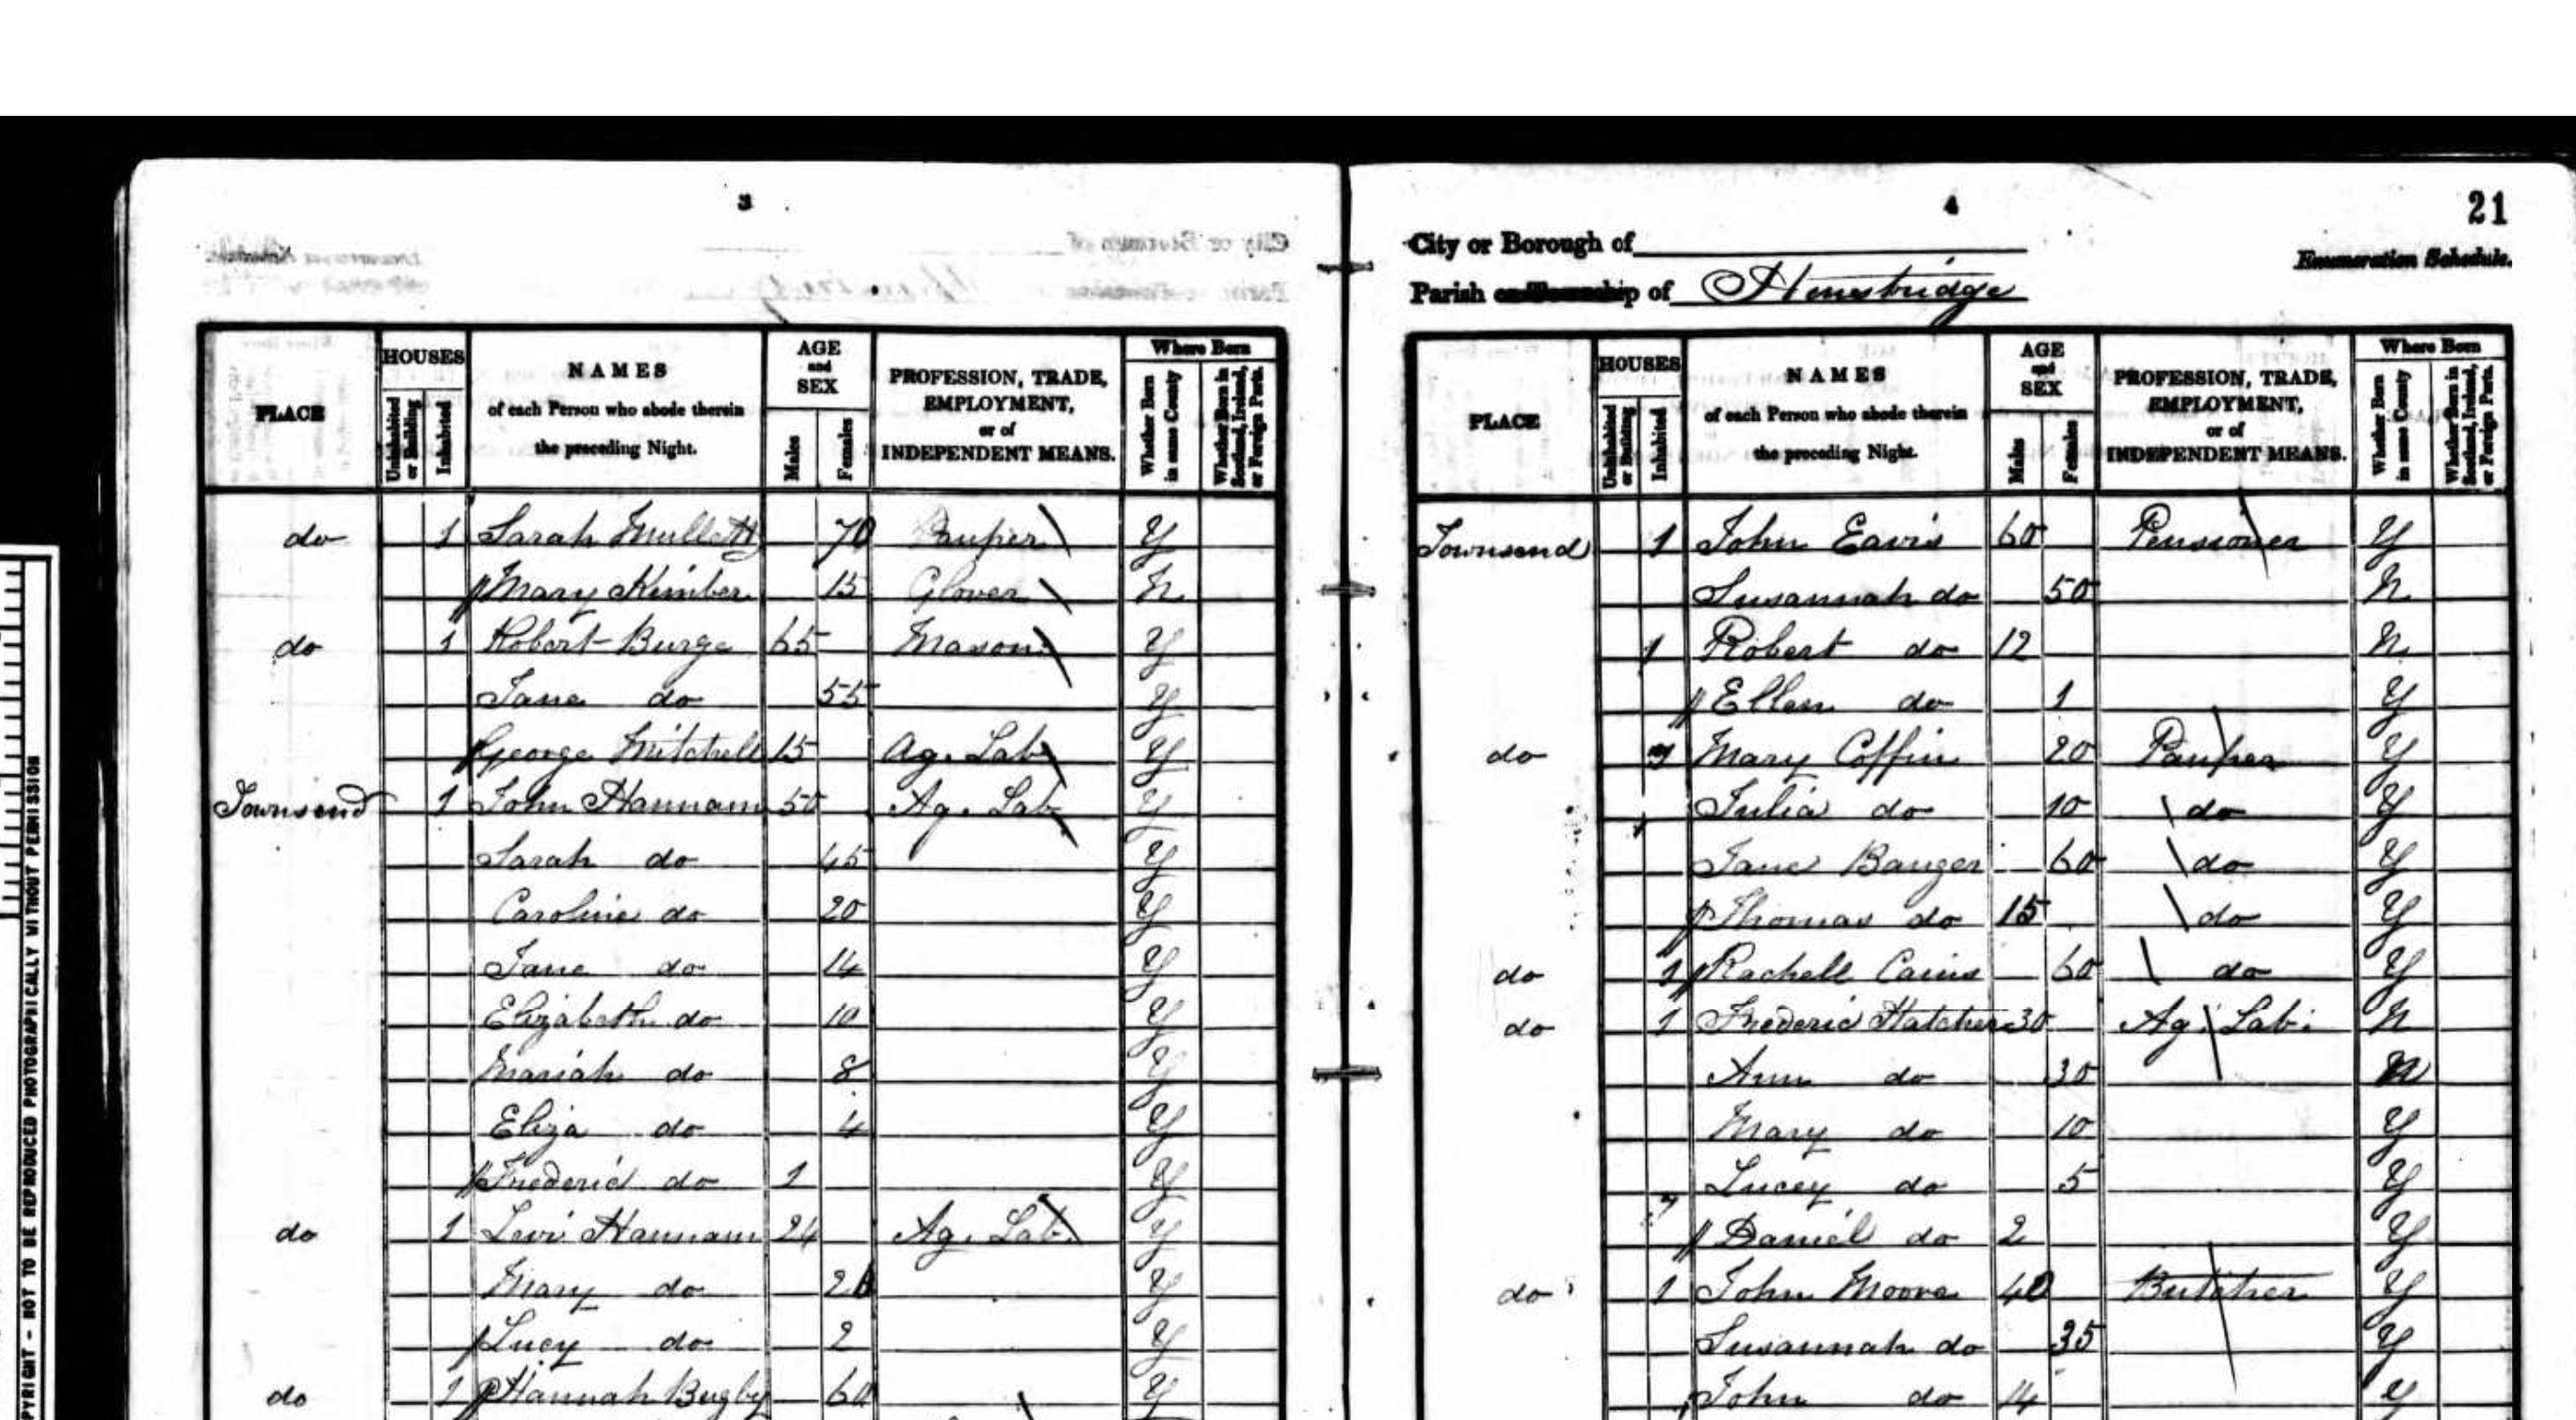 3
PLACE
HOUSES
Uninhabited or Building
Inhabited
NAMES
of each Person who abode therein
the preceding Night.
AGE
and
SEX
Males
Females
PROFESSION, TRADE,
EMPLOYMENT,
or of
INDEPENDENT MEANS.
Where Born
Whether Born in same County
Whether Born in Scotland, Ireland, or Foreign Parts.
do 1 Sarah Mullett 70 Pauper Y
Mary Kimber 15 Glover N
do 1 Robert Burge 65 Mason Y
Jane do 55 Y
George Mitchell 15 Ag. Lab Y
Townsend 1 John Hannam 50 Ag. Lab Y
Sarah do 45 Y
Caroline do 20 Y
Jane do 14 Y
Elizabeth do 10 Y
Mariah do 8 Y
Eliza do 4 Y
Frederic do 1 Y
do 1 Levi Hannam 24 Ag. Lab. Y
Mary do Y
Lucy do 2 Y
do 1 Hannah Bugby 60 Y
COPYRIGHT - NOT TO BE REPRODUCED PHOTOGRAPHICALLY WITHOUT PERMISSION
4
21
City or Borough of
Enumeration Schedule.
Parish or Township of Henstridge
PLACE
HOUSES
Uninhabited or Building
Inhabited
NAMES
of each Person who abode therein
the preceding Night.
AGE
and
SEX
Males
Females
PROFESSION, TRADE,
EMPLOYMENT,
or of
INDEPENDENT MEANS.
Where Born
Whether Born in same County
Whether Born in Scotland, Ireland, or Foreign Parts.
Townsend 1 John Eavis 60 Pensioner Y
Susannah do 50 N
1 Robert do 12 N
Ellen do 1 Y
do Mary Coffin 20 Pauper Y
Julia do 10 do Y
Jane Banger 60 do Y
Thomas do 15 do Y
do 1 Rachell Cains 60 do Y
do 1 Frederic Hatcher 30 Ag. Lab. N
Ann do 30 N
Mary do 10 Y
Lucey do 5 Y
Daniel do 2 Y
do 1 John Moore 40 Butcher Y
Susannah do 35 Y
John do 14 Y